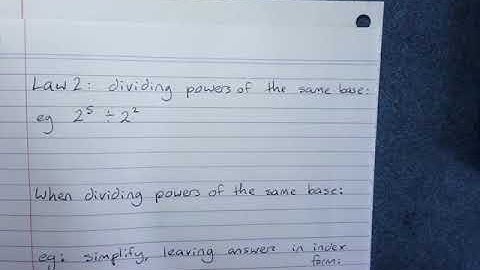 Law 2: dividing powers of the same base:
eg 2⁵ ÷ 2²
When dividing powers of the same base:
eg: simplify, leaving answers in index
form: